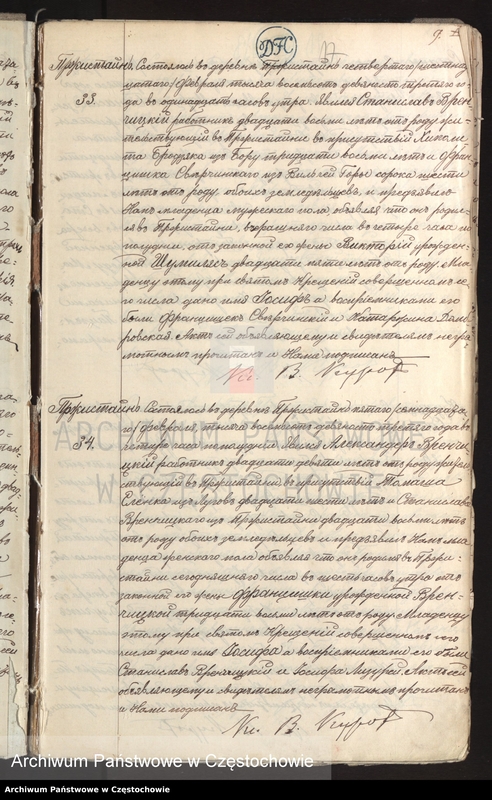 ДК
17
9.
Пржистайнь. Состоялось въ деревнѣ Пржистайнь четвертаго/шестнад
33.
цатаго/Февраля тысяча восемьсотъ девяносто третьяго го-
да въ одинадцать часовъ утра. Явился Станиславъ Врен-
чицкій работникъ двадцати восьми лѣтъ отъ роду жи-
тельствующій въ Пржистайни въ присутствіи
та Бродзяка изъ Бору тридцати восьми лѣтъ и Фран-
цишка изъ Вильчей Горы сорока шести
лѣтъ отъ роду обоихъ земледѣльцевъ и предъявилъ
Намъ младенца мужескаго пола объявляя что онъ родил-
ся въ Пржистайни вчерашняго числа въ четыре часа по
полудни, отъ законной его жены Викторіи урожден-
ной двадцати пяти лѣтъ отъ роду. Мла-
денцу этому при святомъ Крещеніи совершенномъ се-
го числа дано имя Іосифъ а воспріемниками его
были Францишекъ и Катаржина Дом-
ровская. Актъ сей объявляющему и свидѣтелямъ негра-
мотнымъ прочитанъ и Нами подписанъ
Кс. В.
Пржистайнь. Состоялось въ деревнѣ Пржистайнь пятаго/семнадцата-
34.
го/Февраля, тысяча восемьсотъ девяносто третьяго года въ
четыре часа пополудни. Явился Александеръ Врен-
чицкій работникъ двадцати девяти лѣтъ отъ роду житель-
ствующій въ Пржистайни въ присутствіи Томаша
изъ Луговъ двадцати шести лѣтъ и Станислава
Вренчицкаго изъ Пржистайни двадцати восьми лѣтъ
отъ роду обоихъ земледѣльцевъ и предъявилъ Намъ мла-
денца женскаго пола объявляя что онъ родился въ Пржи-
стайни сегодняшняго числа въ шесть часовъ утра отъ
законной его жены Францишки урожденной Врен-
чицкой тридцати восьми лѣтъ отъ роду. Младенцу
этому при святомъ Крещеніи совершенномъ сего
числа дано имя Іосифа а воспріемниками его были
Станиславъ Вренчицкій и Іосифа Актъ сей
объявляющему и свидѣтелямъ неграмотнымъ прочитанъ
и Нами подписанъ
Кс. В.
Archiwum Państwowe w Częstochowie
Archiwum Państwowe w Częstochowie